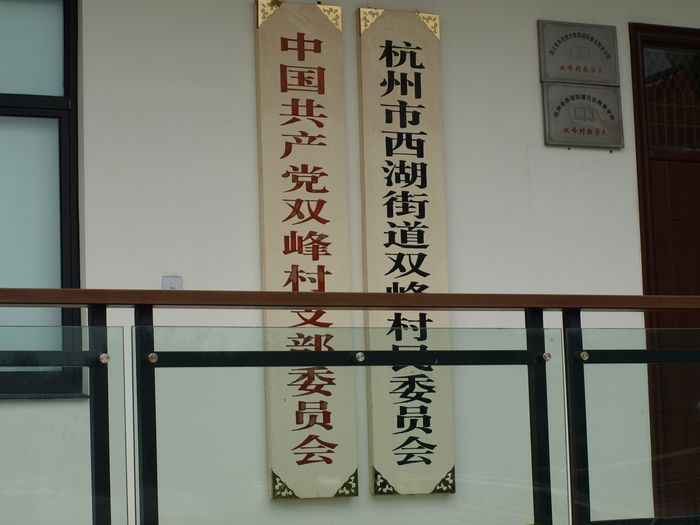 中国共产党双峰村支部委员会
杭州市西湖街道双峰村民委员会
双峰村教学点
双峰村教学点